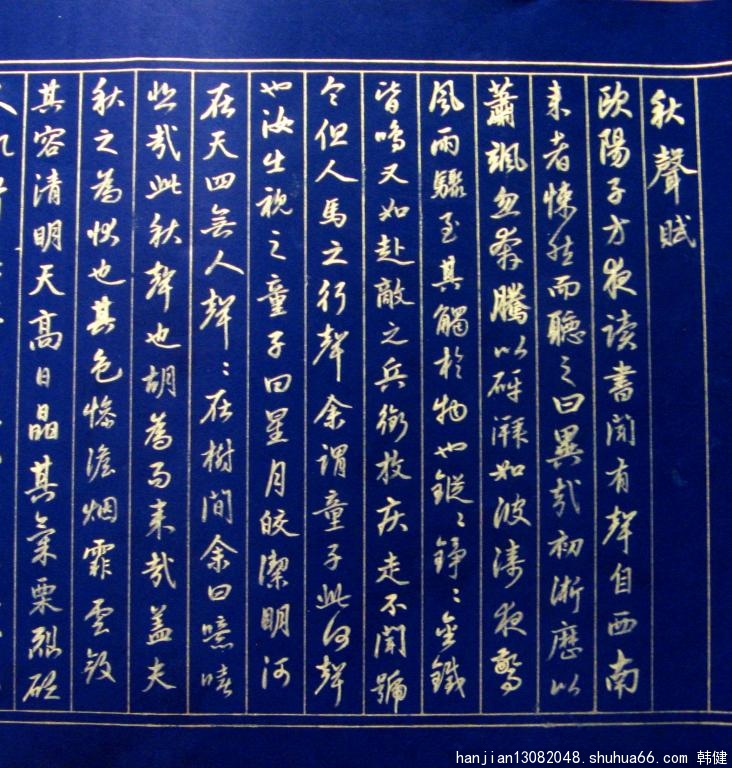 秋聲賦
歐陽子方夜读書聞有聲自西南
来者悚然而聽之曰異哉初淅歷以
蕭颯忽奔騰以砰湃如波涛夜驚
風雨驟至其觸於物也鏦〻錚〻金鐵
皆鳴又如赴敵之兵銜枚疾走不聞號
令但人馬之行聲余謂童子此何聲
也汝出視之童子曰星月皎潔明河
在天四無人聲〻在樹間余曰噫嘻
悲哉此秋聲也胡為而来哉蓋夫
秋之為狀也其色慘澹烟霏雲斂
其容清明天高日晶其氣栗烈砭
hanjian13082048.shuhua66.com 韩健